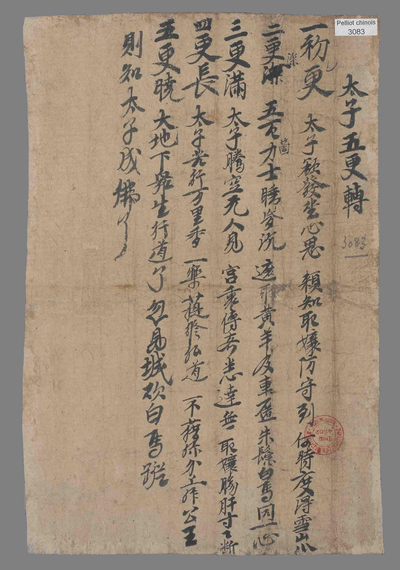 Pelliot chinois
3083
太子五更轉
3083
一初更 太子欲發坐心思 知耶孃防守到 何時度得雪山川
二更深 五百箇力士睡昏沉 遮取黃羊及車匿 朱鬃白馬同一心
三更滿 太子騰空无人見 宮裏傳聞悉達無 耶孃腸肝寸々斷
四更長 太子苦行万里香 一樂菩提修仏道 不藉你分上作公王
五更曉 大地下衆生行道了 忽見城頭白馬蹤
則知太子成佛了